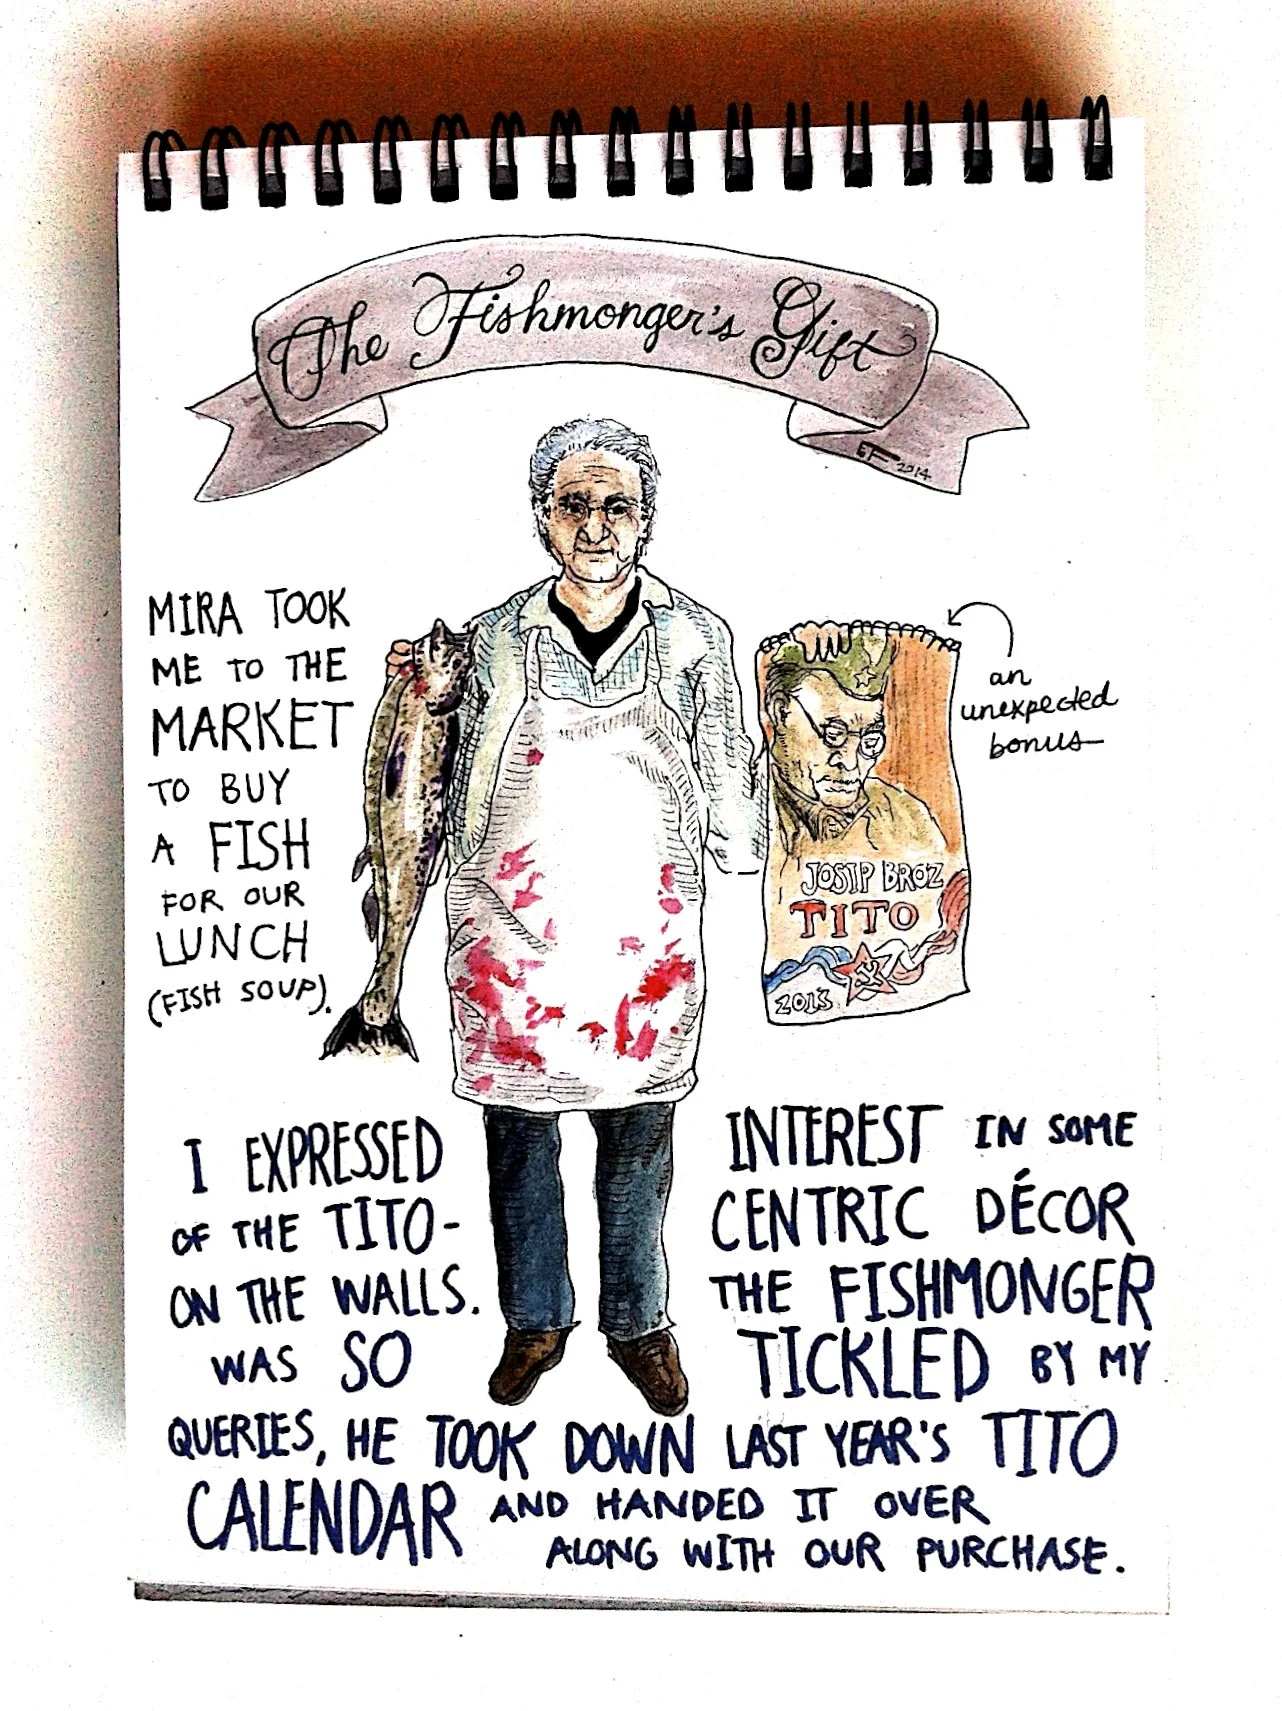 The Fishmonger's Gift
EF 2014
MIRA TOOK
ME TO THE
MARKET
TO BUY
A FISH
FOR OUR
LUNCH
(FISH SOUP).
an
unexpected
bonus
JOSIP BROZ
TITO
2013
I EXPRESSED INTEREST IN SOME
OF THE TITO- CENTRIC DÉCOR
ON THE WALLS. THE FISHMONGER
WAS SO TICKLED BY MY
QUERIES, HE TOOK DOWN LAST YEAR'S TITO
CALENDAR AND HANDED IT OVER
ALONG WITH OUR PURCHASE.